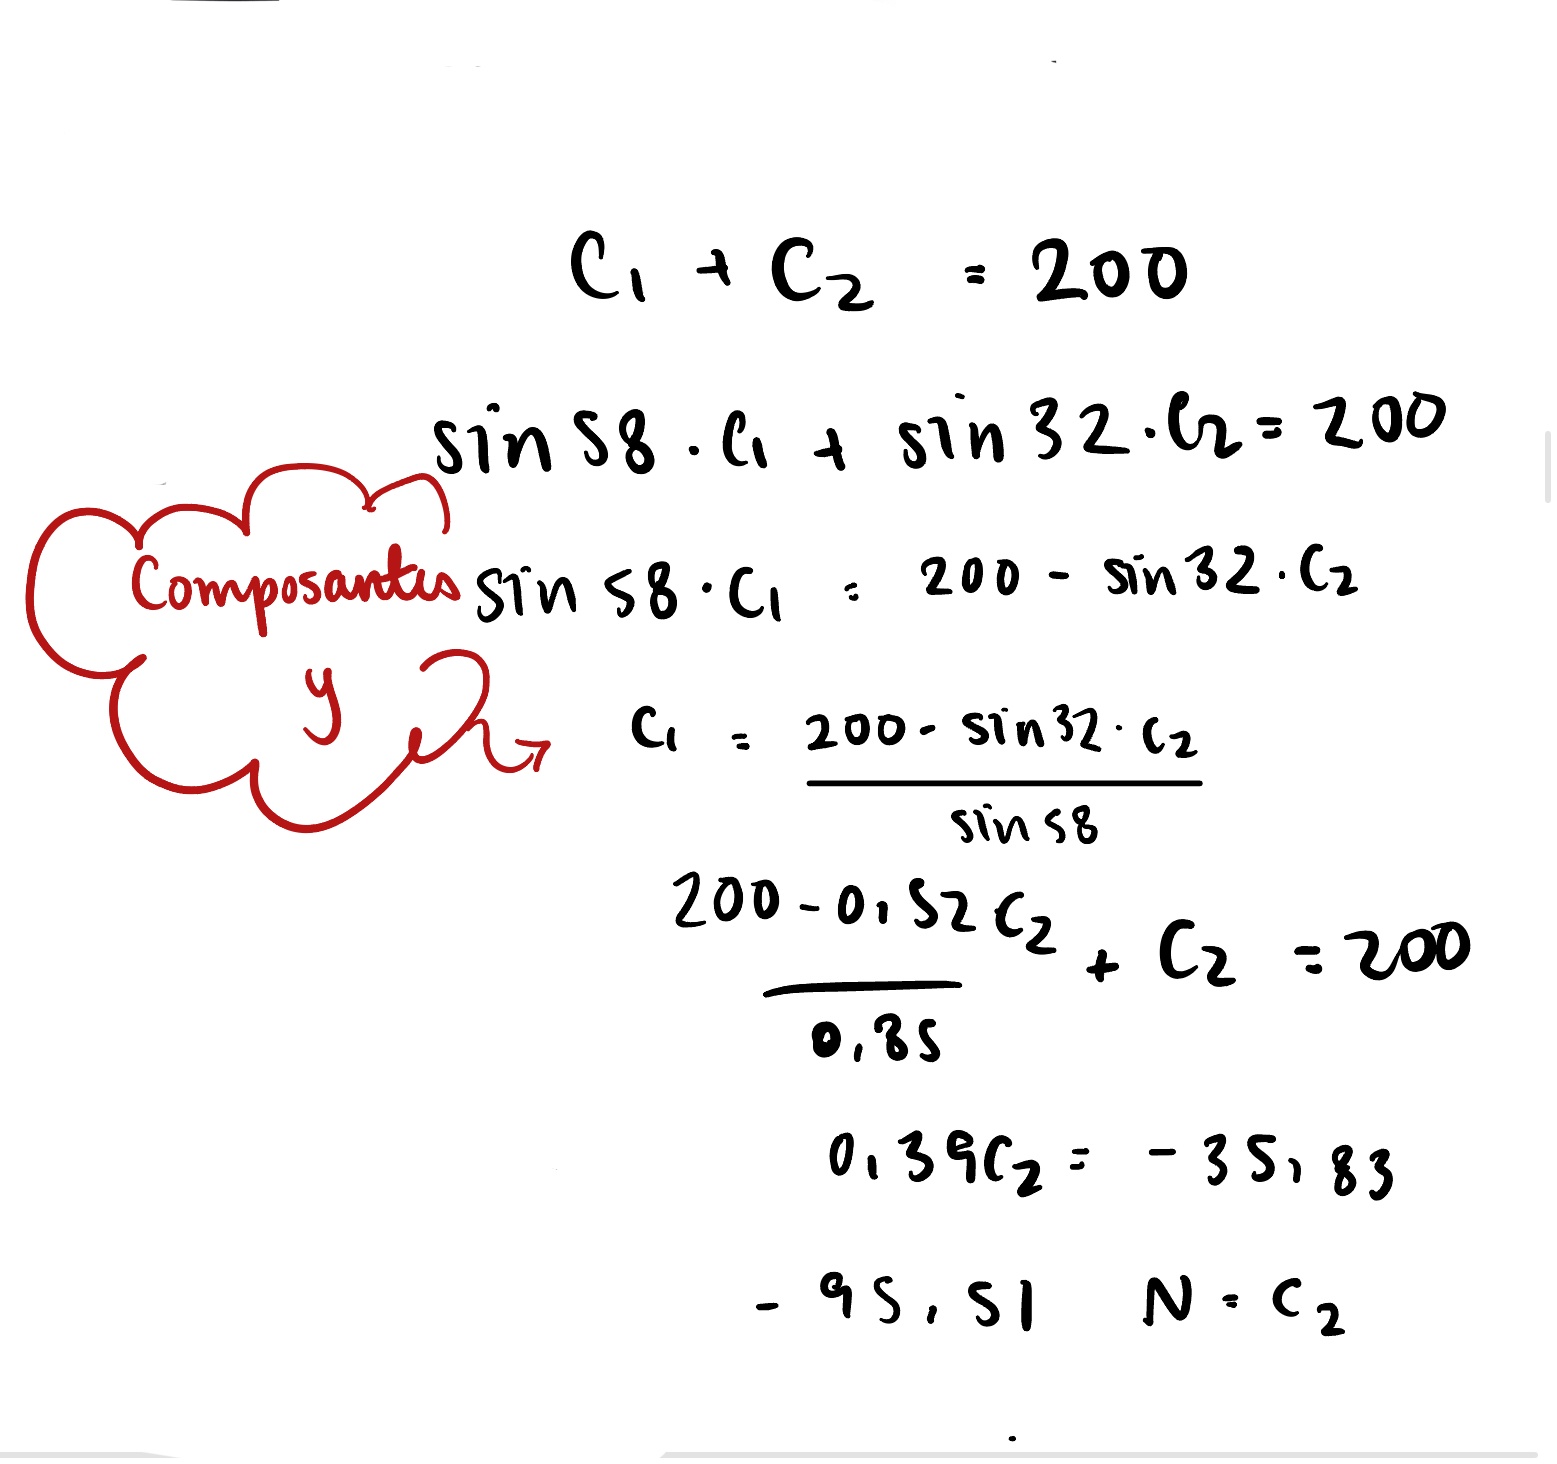 C₁ + C₂ = 200
sin 58 · C₁ + sin 32 · C₂ = 200
Composantes
y
sin 58 · C₁ = 200 - sin 32 · C₂
C₁ = 200 - sin 32 · C₂
sin 58
200 - 0,52 C₂ + C₂ = 200
0,85
0,39C₂ = -35,83
- 95,51 N = C₂